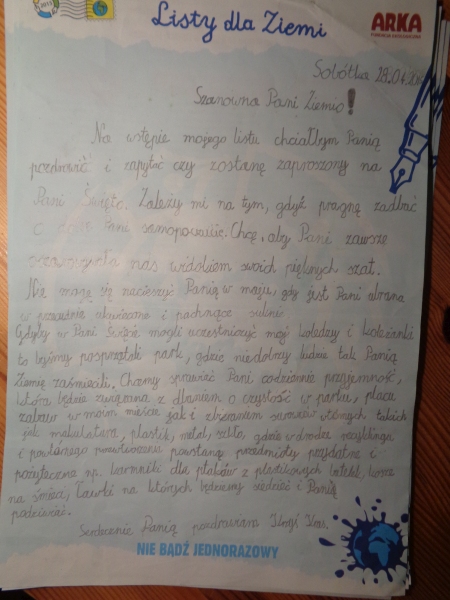 Listy dla Ziemi
ARKA
Sobótka 28.04.
Szanowna Pani Ziemio!
Na wstępie mojego listu chciałbym Panią
pozdrowić i zapytać czy zostanę zaproszony na
Pani Święto. Zależy mi na tym, gdyż pragnę zadbać
o samopoczucie. Chcę, aby Pani zawsze
nas widokiem swoich pięknych szat.
Nie mogę się nacieszyć Panią w maju, gdy jest Pani ubrana
w ukwiecone i pachnące suknie
Gdyby w Pani Święcie mogli uczestniczyć moi koledzy i koleżanki
to byśmy posprzątali park, gdzie niedobrzy ludzie tak Panią
Ziemię zaśmiecili. Chcemy sprawiać Pani codziennie przyjemność,
która będzie związana z dbaniem o czystość w parku, placu
zabaw w moim mieście jak i zbieraniem surowców wtórnych takich
jak makulatura, plastik, metal, szkło, gdzie w drodze recyklingu
i powtórnego przetworzenia powstaną przedmioty przydatne i
pożyteczne np. karmniki dla ptaków z plastikowych butelek, kosze
na śmieci, ławki na których będziemy siedzieć i Panią
podziwiać.
Serdecznie Panią pozdrawiam
NIE BĄDŹ JEDNORAZOWY